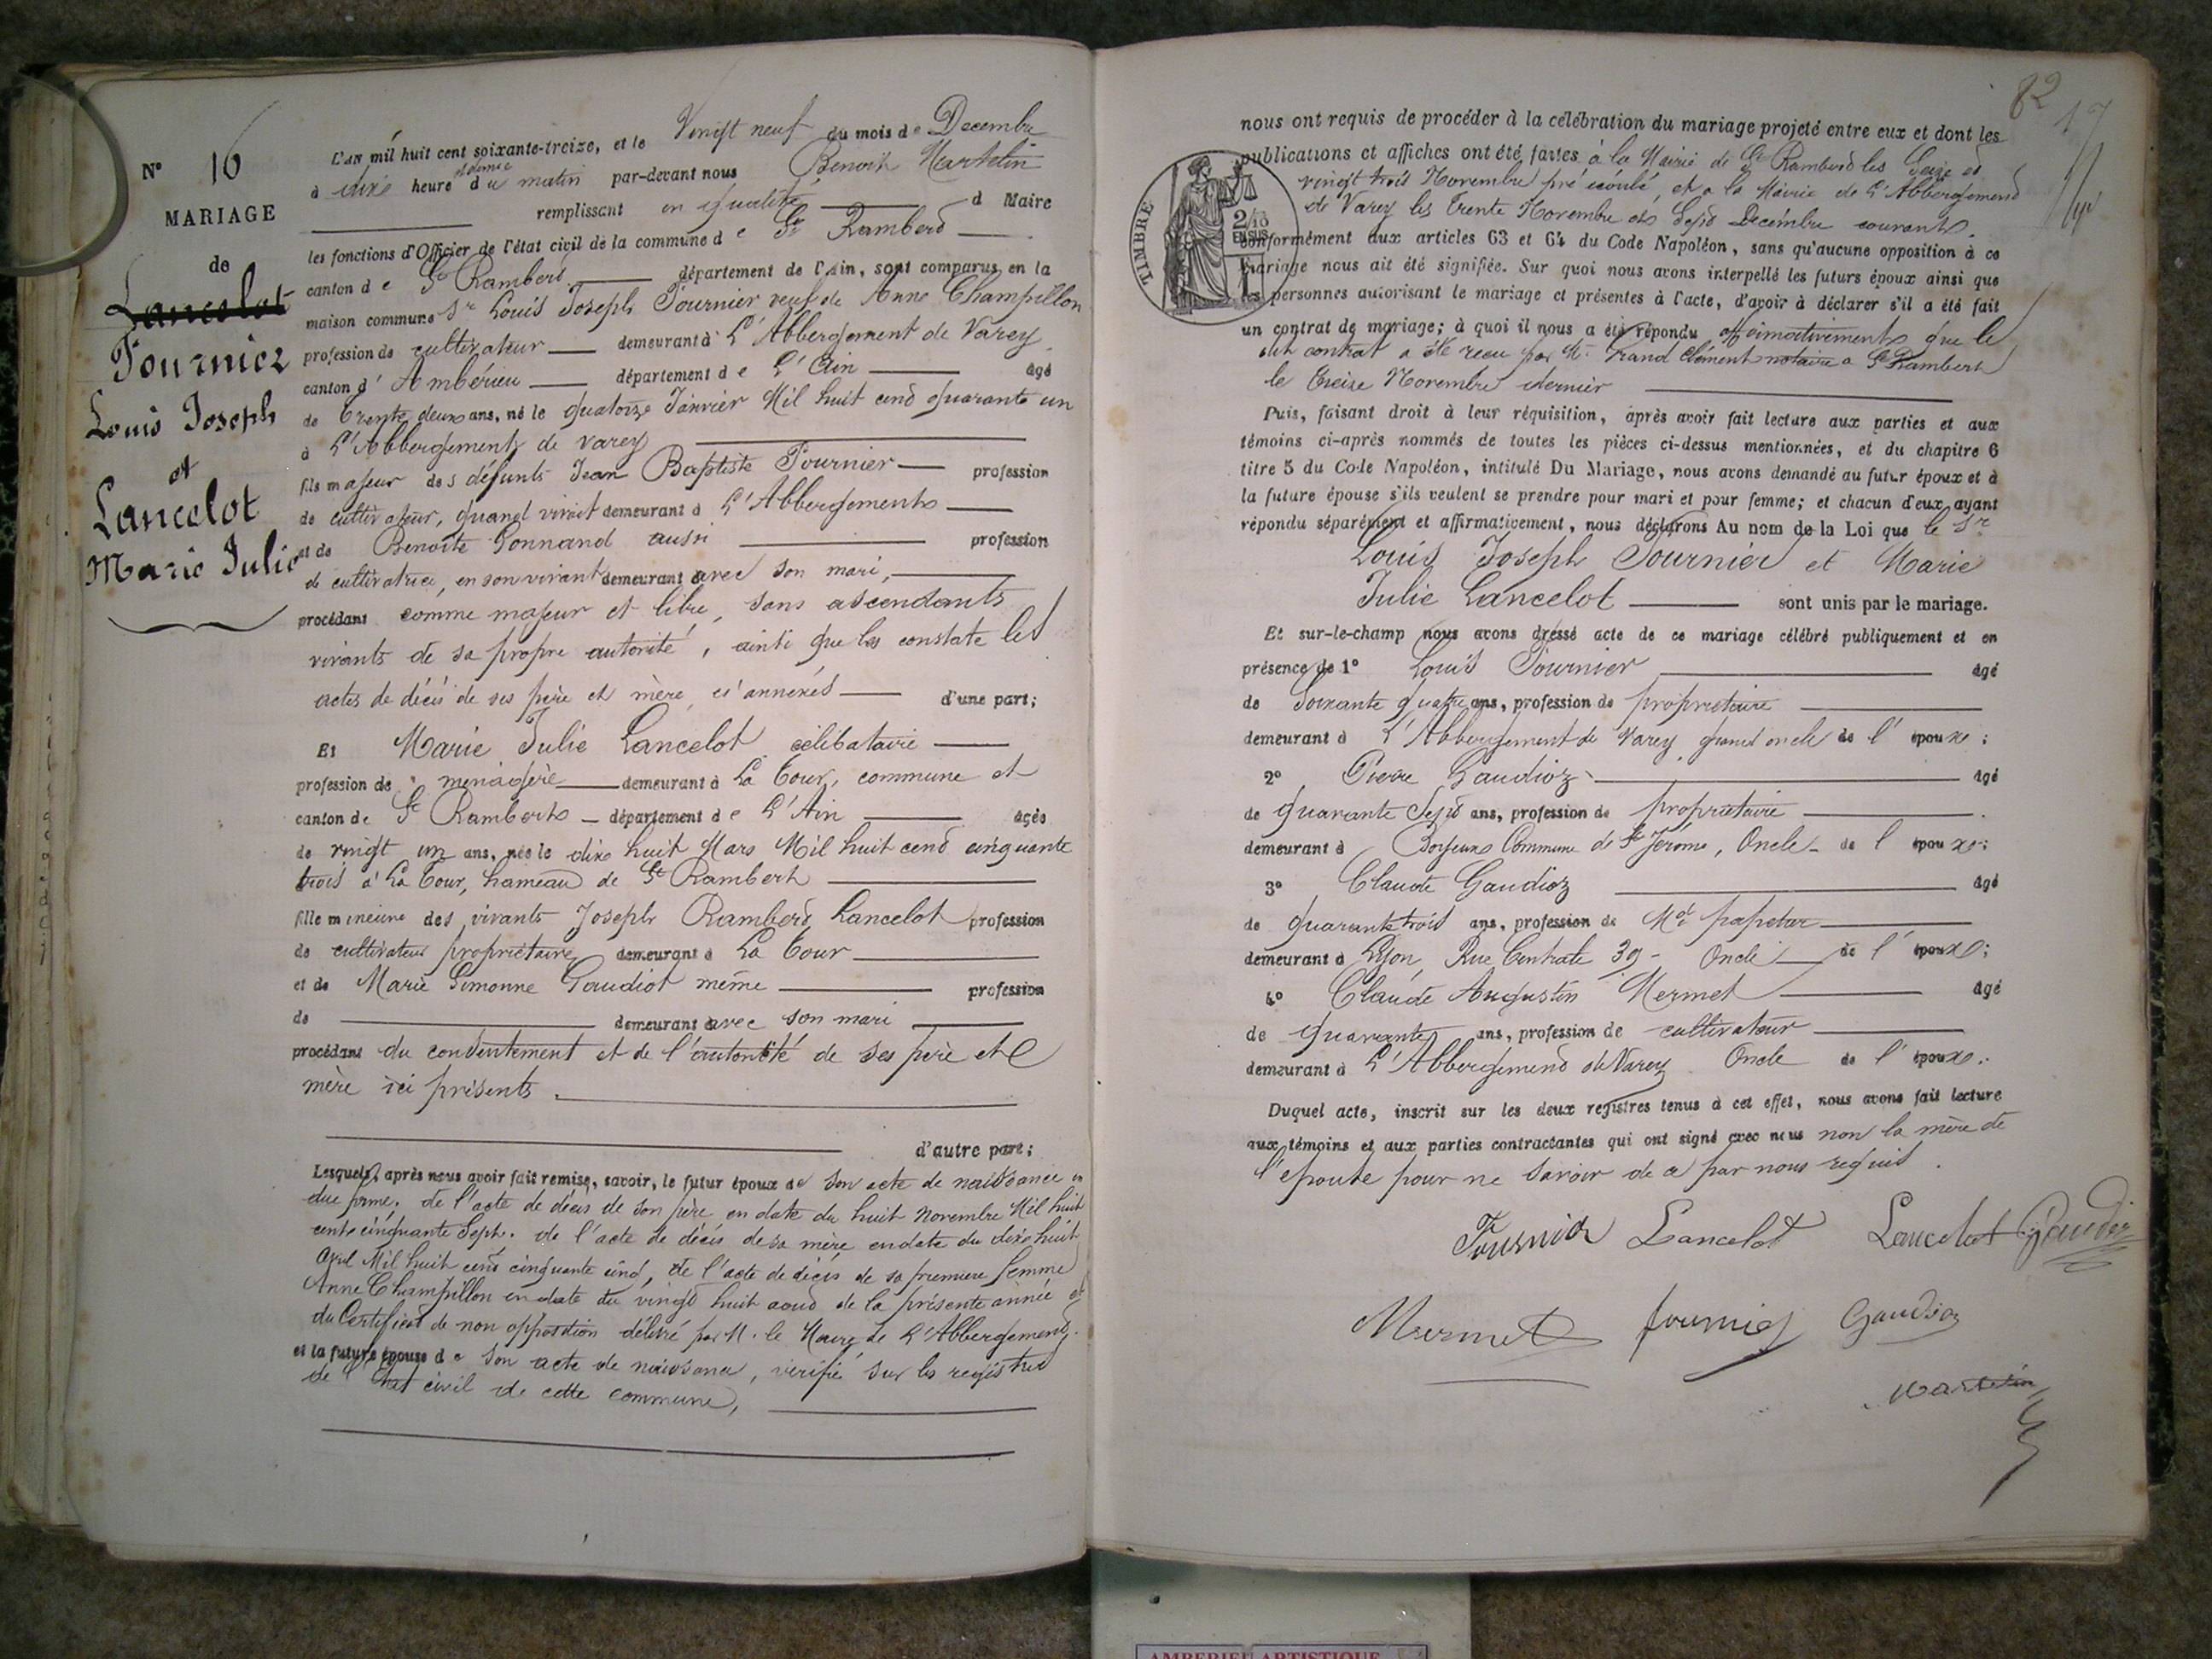 N° 16
MARIAGE
de
Lancelot
Fournier
Louis Joseph
et
Lancelot
Marie Julie
L'an mil huit cent soixante-treize, et le Vingt neuf du mois de Decembre
à dix heure demie du matin par-devant nous Benoit Martelin
remplissant en qualité d Maire
les fonctions d'Officier de l'état civil de la commune de St Rambert
canton de St Rambert département de l'Ain, sont comparus en la
maison commune Sr Louis Joseph Fournier veuf de Anne Champillon
profession de cultivateur demeurant à L'Abbergement de Varey
canton d'Ambérieu département de L'Ain âgé
de trente deux ans, né le quatorze Janvier Mil huit cent quarante un
à L'Abbergement de Varey
fils majeur des défunts Jean Baptiste Fournier profession
de cultivateur, quand vivait demeurant à L'Abbergement
et de Benoite Gonnand aussi profession
de cultivatrice, en son vivant demeurant avec son mari,
procédant comme majeur et libre, sans ascendants
vivants de sa propre autorité, ainsi que les constate les
actes de décès de ses père et mère ci annexés d'une part;
Et Marie Julie Lancelot célibataire
profession de ménagère demeurant à La Tour, commune et
canton de St Rambert département de L'Ain âgée
de vingt un ans, née le dix huit Mars Mil huit cent cinquante
trois à La Tour, hameau de St Rambert
fille mineure des vivants Joseph Rambert Lancelot profession
de cultivateur propriétaire demeurant à La Tour
et de Marie Simonne Gaudiot même profession
de demeurant avec son mari
procédant du consentement et de l'autorité de ses père et
mère ici présents.
d'autre part;
Lesquels, après nous avoir fait remise, savoir, le futur époux de son acte de naissance en
due forme. de l'acte de décès de son père en date du huit Novembre Mil huit
cent cinquante Sept. de l'acte de décès de sa mère en date du dix huit
Avril Mil huit cent cinquante cinq, de l'acte de décès de sa première femme
Anne Champillon en date du vingt huit aout de la présente année et
du Certificat de non opposition délivré par M. le Maire de L'Abbergement.
et la future épouse de son acte de naissance, vérifié sur les registres
de l'Etat civil de cette commune,
82
17
nous ont requis de procéder à la célébration du mariage projeté entre eux et dont les
publications et affiches ont été faites à la Mairie de St Rambert les Seize et
vingt trois Novembre pré écoulé, et a la Mairie de L'Abbergement
de Varey les trente Novembre et Sept Decembre courant.
TIMBRE
2/10
EN SUS
conformément aux articles 63 et 64 du Code Napoléon, sans qu'aucune opposition à ce
mariage nous ait été signifiée. Sur quoi nous avons interpellé les futurs époux ainsi que
les personnes autorisant le mariage et présentes à l'acte, d'avoir à déclarer s'il a été fait
un contrat de mariage; à quoi il nous a été répondu affirmativement que le
dit contrat a été reçu par Me Grand Clément notaire a St Rambert
le treize Novembre dernier
Puis, faisant droit à leur réquisition, après avoir fait lecture aux parties et aux
témoins ci-après nommés de toutes les pièces ci-dessus mentionnées, et du chapitre 6
titre 5 du Code Napoléon, intitulé Du Mariage, nous avons demandé au futur époux et à
la future épouse s'ils veulent se prendre pour mari et pour femme; et chacun d'eux ayant
répondu séparément et affirmativement, nous déclarons Au nom de la Loi que le Sr
Louis Joseph Fournier et Marie
Julie Lancelot sont unis par le mariage.
Et sur-le-champ nous avons dressé acte de ce mariage célébré publiquement et en
présence de 1° Louis Fournier âgé
de Soixante quatre ans, profession de propriétaire
demeurant à L'Abbergement de Varey grand oncle de l'époux;
2° Pierre Gaudioz âgé
de quarante Sept ans, profession de propriétaire
demeurant à Commune de St Jérome, Oncle de l'épouse;
3° Claude Gaudioz âgé
de quarante trois ans, profession de Md papetier
demeurant à Lyon, Rue Centrale 39 - Oncle de l'épouse;
4° Claude Augustin Mermet âgé
de quarante ans, profession de cultivateur
demeurant à L'Abbergement de Varey Oncle de l'époux.
Duquel acte, inscrit sur les deux registres tenus à cet effet, nous avons fait lecture
aux témoins et aux parties contractantes qui ont signé avec nous non la mère de
l'épouse pour ne savoir de ce par nous requis.
Fournier Lancelot Lancelot Gaudioz
Mermet fournier Gaudioz
Martelin
AMBERIEU ARTISTIQUE